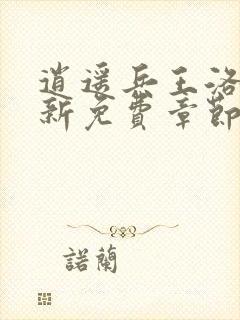 逍遥兵王洛
新免費章節
諾蘭